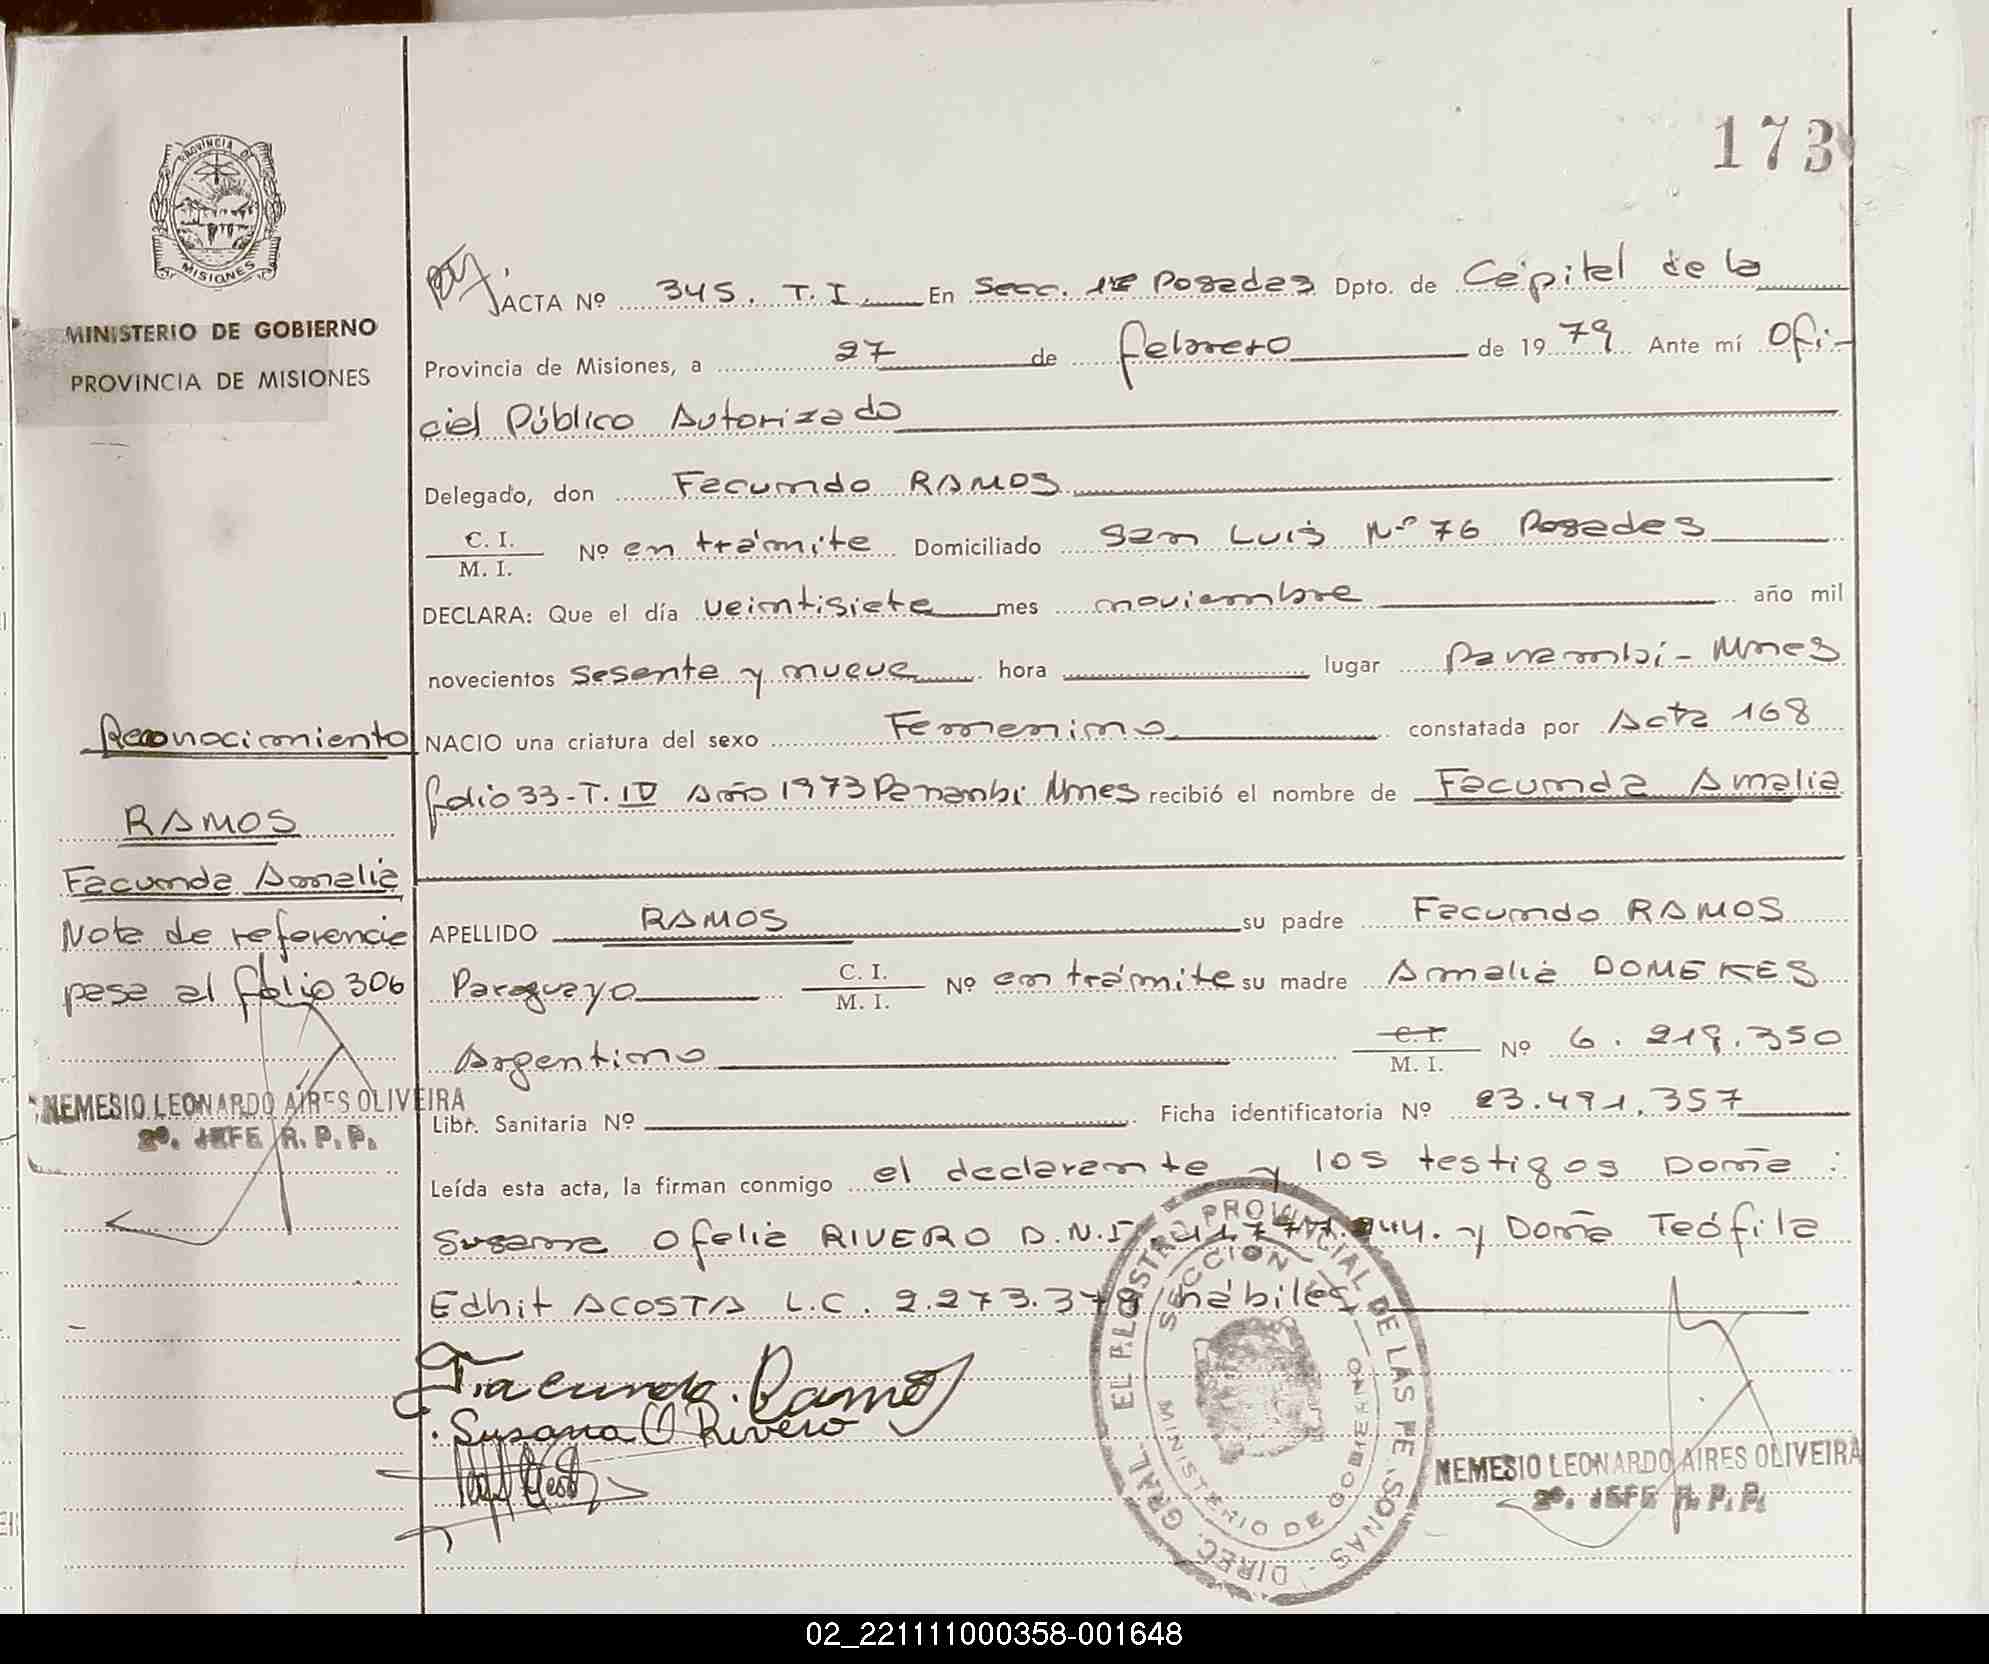 173
PROVINCIA DE
MISIONES
MINISTERIO DE GOBIERNO
PROVINCIA DE MISIONES
ACTA Nº 345. T. I. En Secc. 1ª Posadas Dpto. de Capital de la
Provincia de Misiones, a 27 de febrero de 1979 Ante mí Ofi-
cial Público Autorizado
Delegado, don Facundo RAMOS
C. I. / M. I. Nº en trámite Domiciliado San Luis Nº 76 Posadas
DECLARA: Que el día veintisiete mes noviembre año mil
novecientos sesenta y nueve hora lugar Panambí - Mnes
NACIO una criatura del sexo Femenino constatada por Acta 168
folio 33 - T. IV Año 1973 Panambí Mnes recibió el nombre de Facunda Amalia
APELLIDO RAMOS su padre Facundo RAMOS
Paraguayo C. I. / M. I. Nº en trámite su madre Amalia DOMEKES
Argentino C. I. / M. I. Nº 6.219.350
Libr. Sanitaria Nº Ficha identificatoria Nº 23.491.357
Leída esta acta, la firman conmigo el declarante y los testigos Doña:
Susana Ofelia RIVERO D.N.I. y Doña Teófila
Edhit ACOSTA L.C. 2.273.378 hábiles
Reconocimiento
RAMOS
Facunda Amalia
Nota de referencia
pasa al folio 306
NEMESIO LEONARDO AIRES OLIVEIRA
2º. JEFE R. P. P.
Facundo Ramos
Susana O Rivero
DIREC. GRAL. EL P. LOSTRA PROVINCIAL DE LAS PERSONAS
SECCION
MINISTERIO DE GOBIERNO
NEMESIO LEONARDO AIRES OLIVEIRA
2º. JEFE R. P. P.
02_221111000358-001648